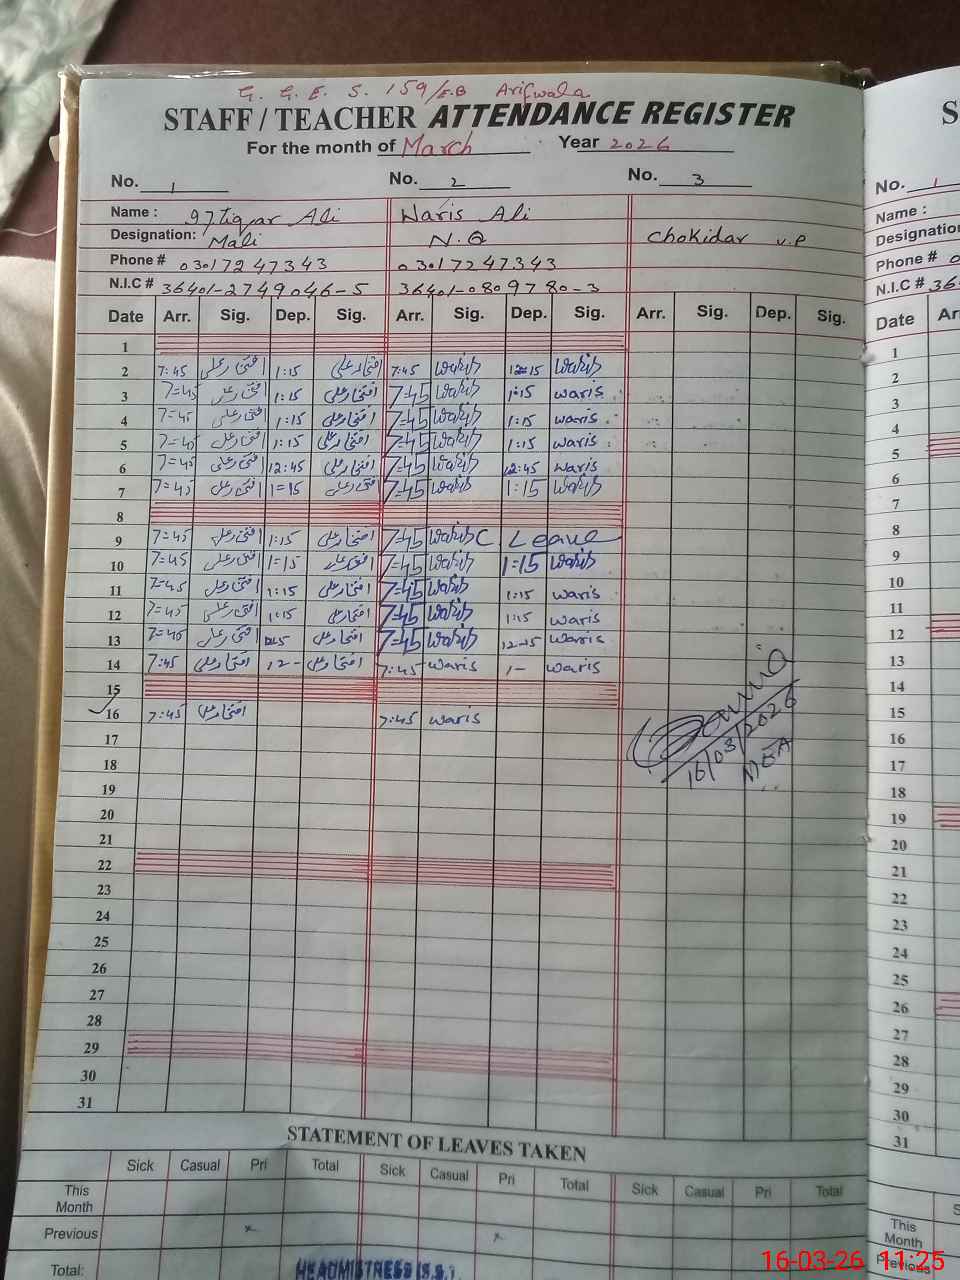 G. G. E. S. 159/E.B Arifwala
STAFF / TEACHER ATTENDANCE REGISTER
For the month of March Year 2026
No. 1 No. 2 No. 3
Name : 97tiqar Ali Waris Ali
Designation: Mali N.Q Chokidar v.p
Phone # 03017247343 03017247343
N.I.C # 36401-2749046-5 36401-0809780-3
Date Arr. Sig. Dep. Sig. Arr. Sig. Dep. Sig. Arr. Sig. Dep. Sig.
1
2 7:45 افتخار علی 1:15 افتخار علی 7:45 Waris 12:15 Waris
3 7=45 افتخار علی 1:15 افتخار علی 7=45 Waris 1:15 waris
4 7=45 افتخار علی 1:15 افتخار علی 7=45 Waris 1:15 waris
5 7=45 افتخار علی 1:15 افتخار علی 7=45 Waris 1:15 waris
6 7=45 افتخار علی 12:45 افتخار علی 7=45 Waris 12:45 waris
7 7=45 افتخار علی 1=15 افتخار علی 7=45 Waris 1:15 Waris
8
9 7=45 افتخار علی 1:15 افتخار علی 7=45 Waris C. Leave
10 7=45 افتخار علی 1=15 افتخار علی 7=45 Waris 1:15 Waris
11 7=45 افتخار علی 1:15 افتخار علی 7=45 Waris 1:15 waris
12 7=45 افتخار علی 1:15 افتخار علی 7=45 Waris 1:15 waris
13 7=45 افتخار علی افتخار علی 7=45 Waris 12-15 Waris
14 7:45 افتخار علی 12- افتخار علی 7:45 waris 1- waris
15
16 7:45 افتخار علی 7:45 waris
16/03/2026
MEA
17
18
19
20
21
22
23
24
25
26
27
28
29
30
31
STATEMENT OF LEAVES TAKEN
Sick Casual Pri Total Sick Casual Pri Total Sick Casual Pri Total
This Month
Previous × ×
Total:
HEADMISTRESS (S.S.),
S
No. 1
Name :
Designation
Phone # 0
N.I.C # 36
Date Ar
1
2
3
4
5
6
7
8
9
10
11
12
13
14
15
16
17
18
19
20
21
22
23
24
25
26
27
28
29
30
31
S
This Month
Previous
16-03-26 11:25